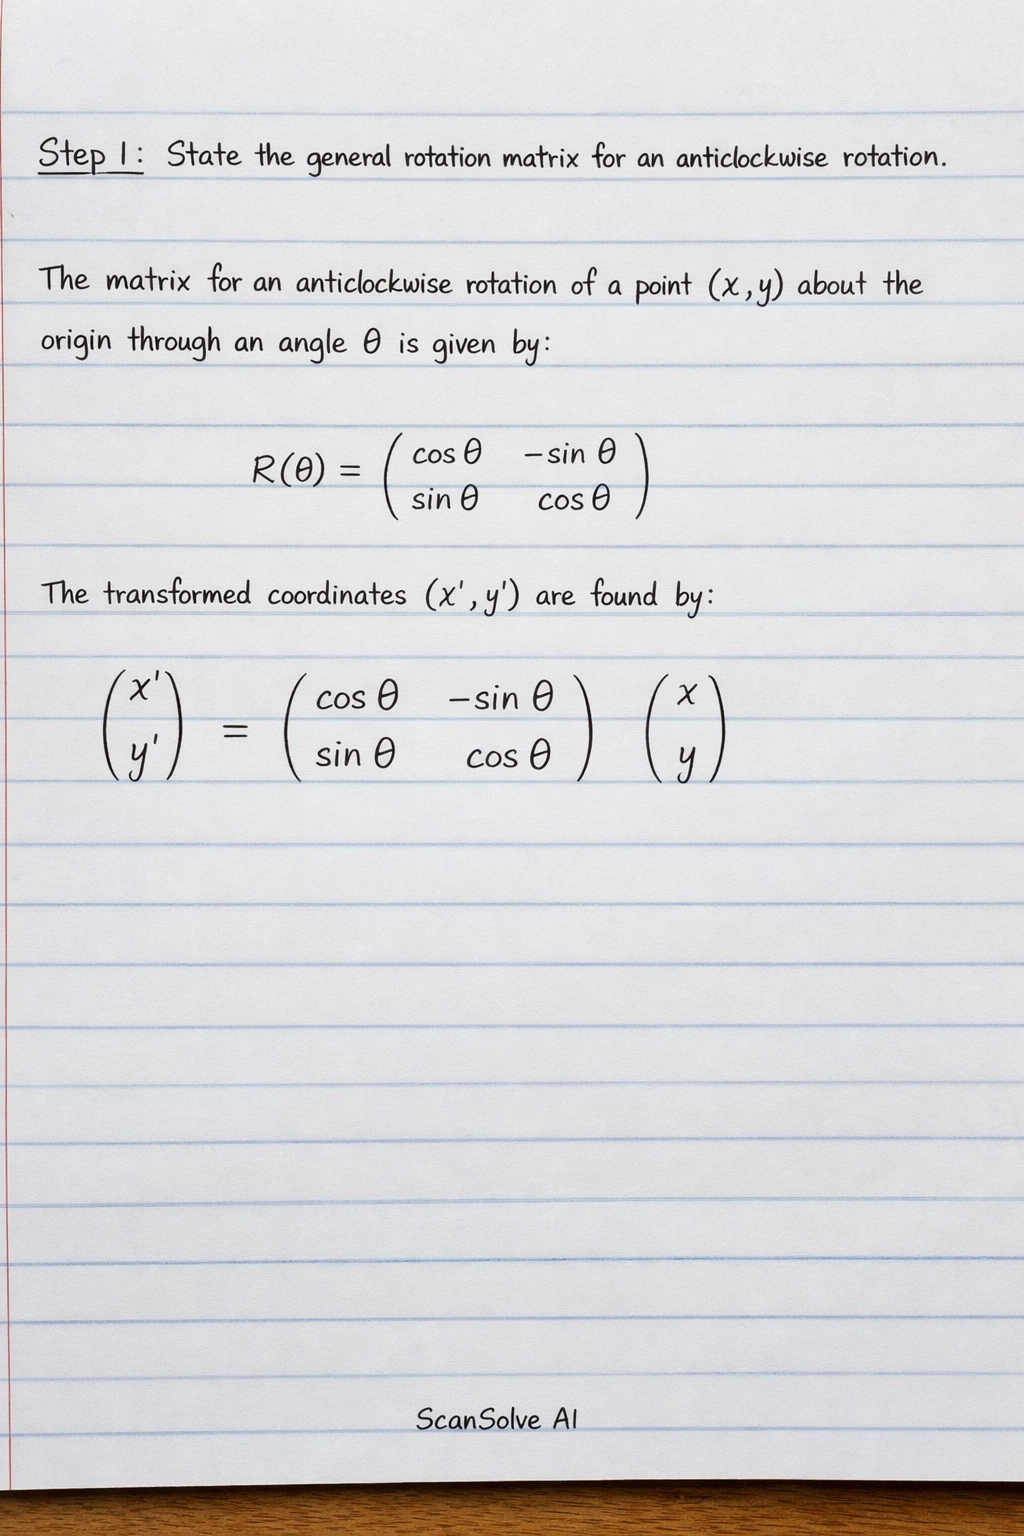 Step 1: State the general rotation matrix for an anticlockwise rotation.
The matrix for an anticlockwise rotation of a point (x, y) about the
origin through an angle θ is given by:
R(θ) = ( cos θ   −sin θ )
( sin θ   cos θ )
The transformed coordinates (x', y') are found by:
( x' ) = ( cos θ   −sin θ ) ( x )
( y' )   ( sin θ   cos θ ) ( y )
ScanSolve AI